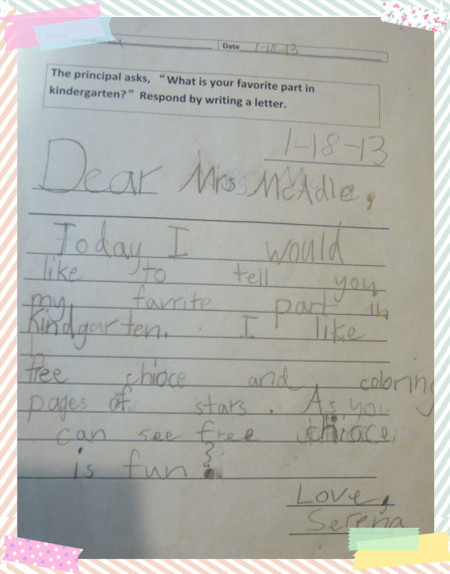 Date 1-18-13
The principal asks, “What is your favorite part in
kindergarten?” Respond by writing a letter.
1-18-13
Dear Mrs McAdie,
Today I would
like to tell you
my favrite part in
Kindgarten. I like
free chioce and coloring
pages of stars. As you
can see free chioce
is fun!
Love,
Serena